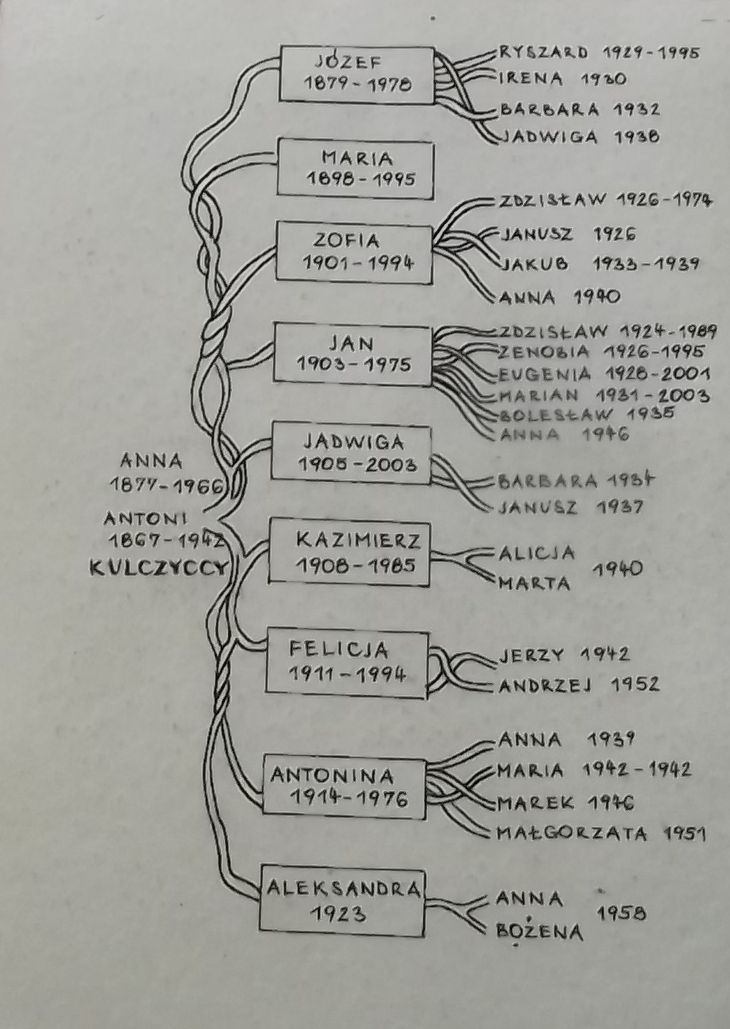 JÓZEF
1879-1978
RYSZARD 1929-1995
IRENA 1930
BARBARA 1932
JADWIGA 1938
MARIA
1898-1995
ZOFIA
1901-1994
ZDZISŁAW 1926-1974
JANUSZ 1926
JAKUB 1933-1939
ANNA 1940
JAN
1903-1975
ZDZISŁAW 1924-1989
ZENOBIA 1926-1995
EUGENIA 1928-2001
MARIAN 1931-2003
BOLESŁAW 1935
ANNA 1946
JADWIGA
1905-2003
BARBARA 1934
JANUSZ 1937
ANNA
1877-1966
ANTONI
1867-1942
KULCZYCCY
KAZIMIERZ
1908-1985
ALICJA
MARTA 1940
FELICJA
1911-1994
JERZY 1942
ANDRZEJ 1952
ANTONINA
1914-1976
ANNA 1939
MARIA 1942-1942
MAREK 1946
MAŁGORZATA 1951
ALEKSANDRA
1923
ANNA
BOŻENA 1958